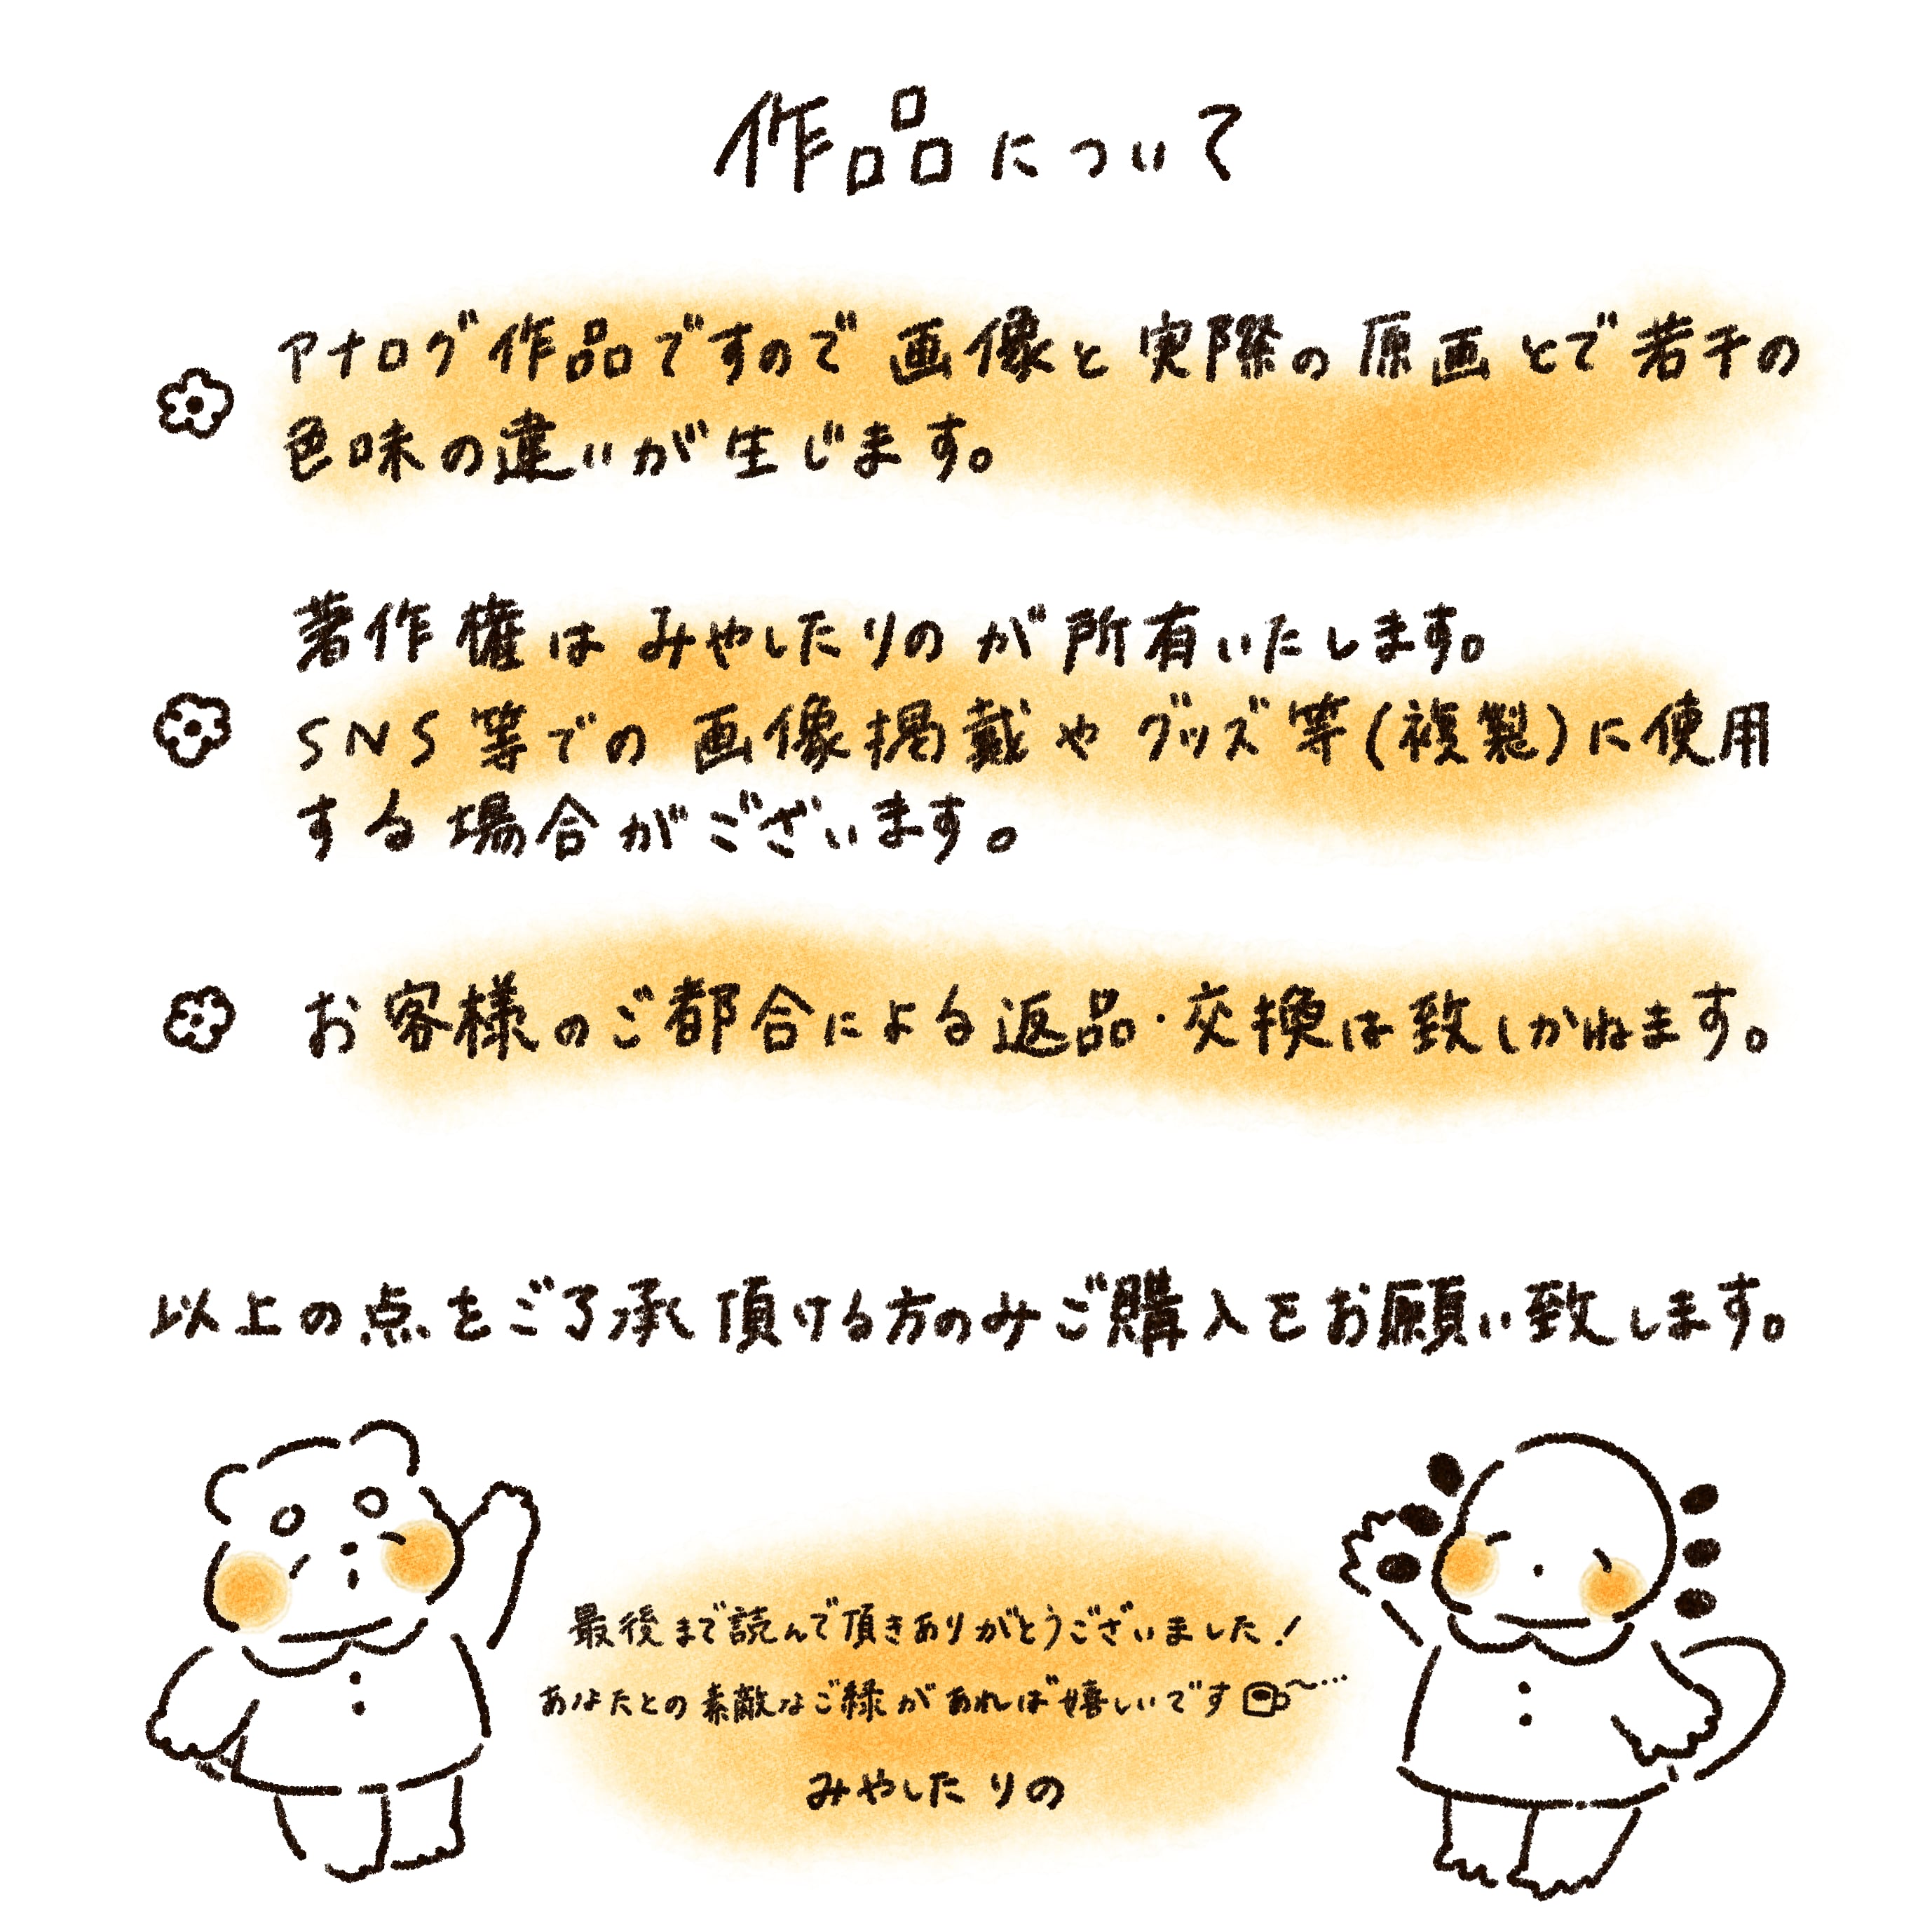 作品について
アナログ作品ですので画像と実際の原画とで若干の
色味の違いが生じます。
著作権はみやしたりのが所有いたします。
SNS等での画像掲載やグッズ等(複製)に使用
する場合がございます。
お客様のご都合による返品・交換は致しかねます。
以上の点をご了承頂ける方のみご購入をお願い致します。
最後まで読んで頂きありがとうございました!
あなたとの素敵なご縁があれば嬉しいです〜…
みやした りの